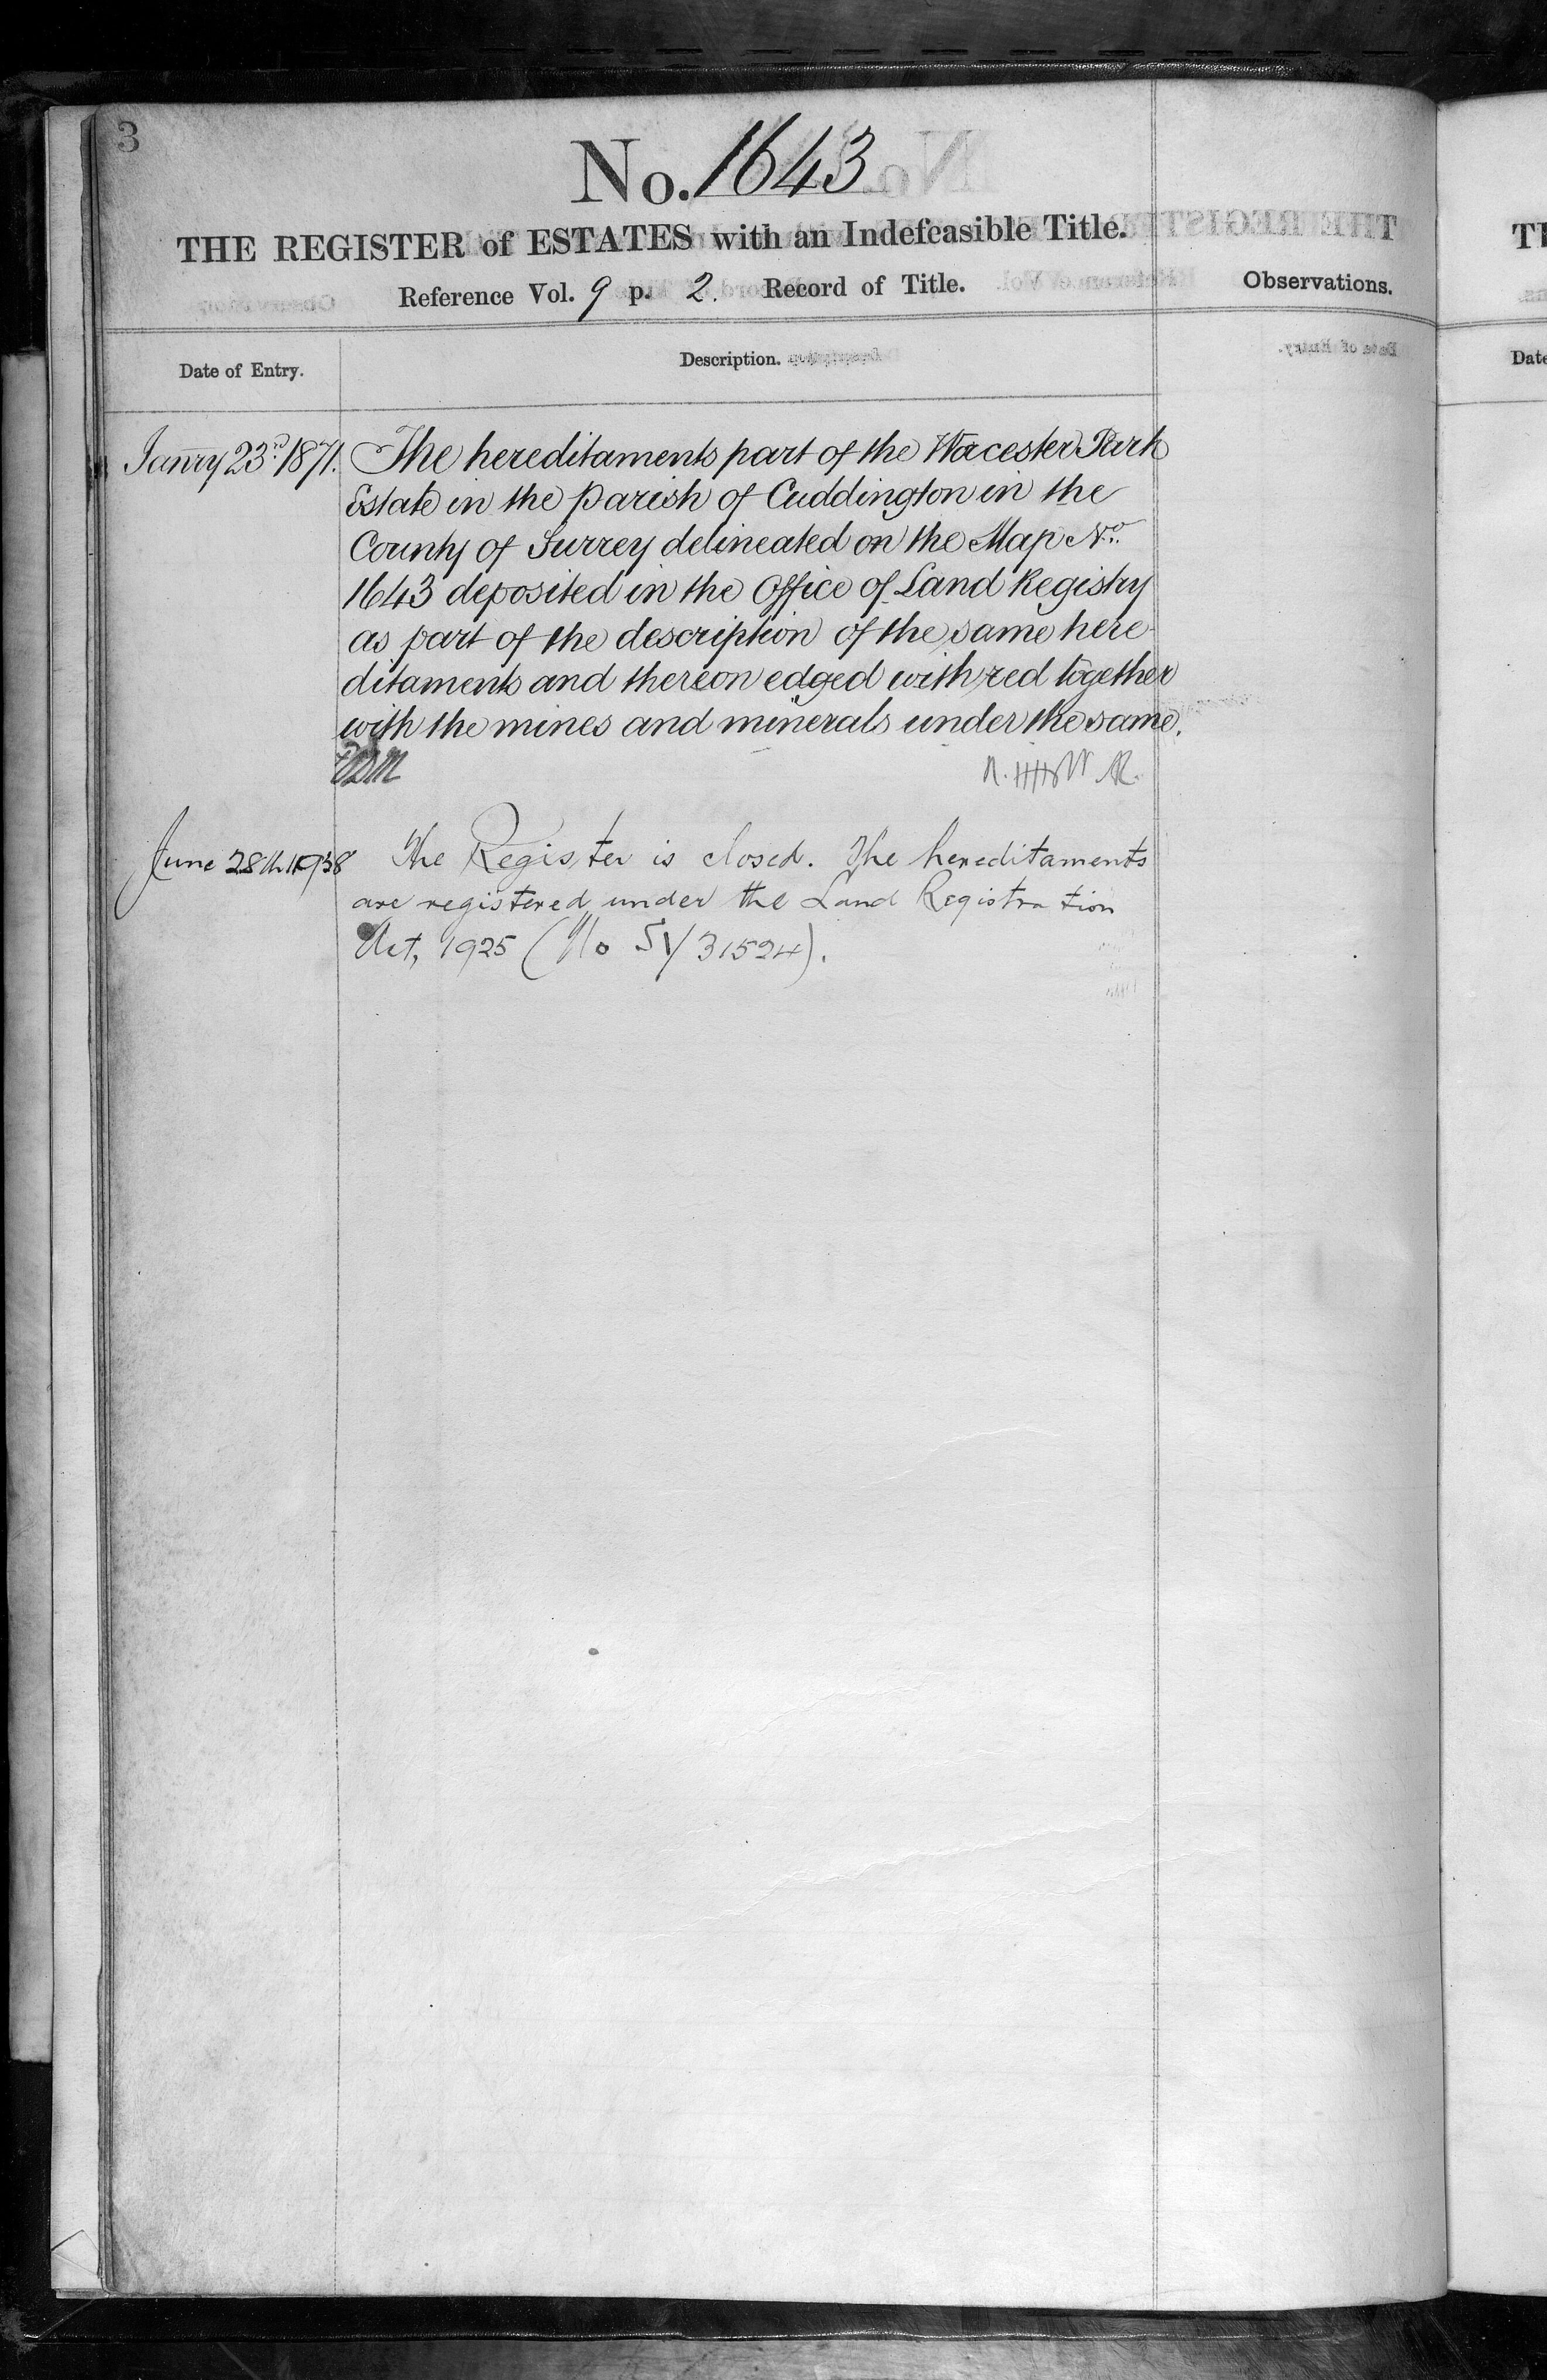 3
No. 1643
THE REGISTER of ESTATES with an Indefeasible Title.
Reference Vol. 9 p. 2. Record of Title.
Observations.
Date of Entry.
Description.
Janry 23rd 1871. The hereditaments part of the Worcester Park
Estate in the Parish of Cuddington in the
County of Surrey delineated on the Map No.
1643 deposited in the Office of Land Registry
as part of the description of the same here
ditaments and thereon edged with red together
with the mines and minerals under the same.
June 28th 1938 The Register is closed. The hereditaments
are registered under the Land Registration
Act, 1925 (No Sy 31524).
TH
Date